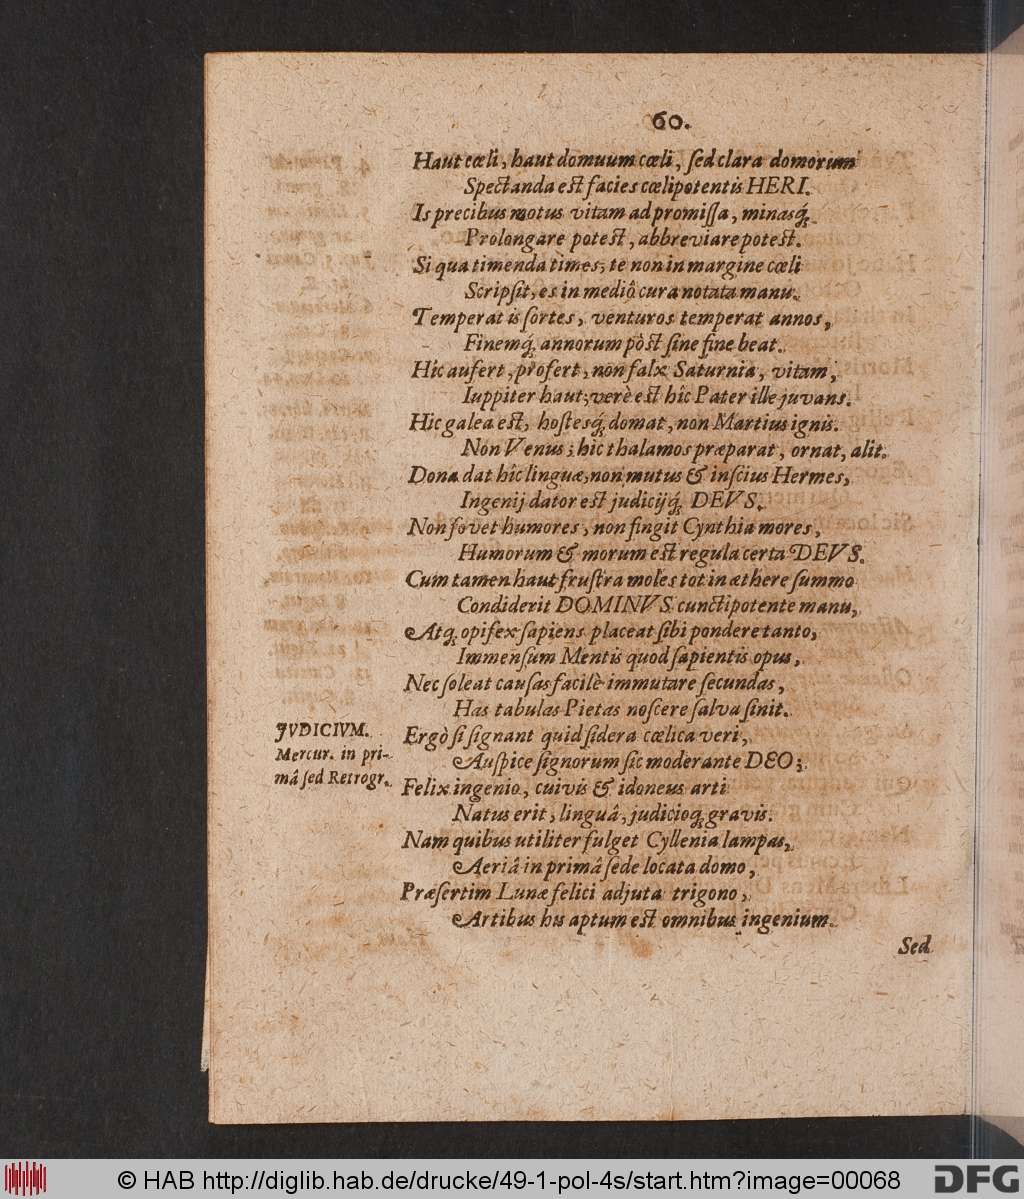 60.
Haut cœli, haut domuum cœli, ſed clara domorum
Spectanda eſt facies cœlipotentis HERI.
Is precibus motus vitam ad promiſſa, minasq́;
Prolongare poteſt, abbreviare poteſt.
Si qua timenda times, te non in margine cœli
Scripſit, es in mediô cura notata manu.
Temperat is ſortes, venturos temperat annos,
Finemq́; annorum pòſt ſine fine beat.
Hîc aufert, profert, non falx Saturnia, vitam,
Iuppiter haut; verè eſt hîc Pater ille juvans.
Hic galea eſt, hoſtesq́; domat, non Martius ignis.
Non Venus; hic thalamos præparat, ornat, alit.
Dona dat hîc linguæ, non mutus & inſcius Hermes,
Ingenij dator eſt judicijq́; DEVS.
Non fovet humores, non fingit Cynthia mores,
Humorum & morum eſt regula certa DEVS.
Cum tamen haut fruſtra moles tot in æthere ſummo
Condiderit DOMINVS cunctipotente manu,
Atq; opifex ſapiens placeat ſibi pondere tanto,
Immenſum Mentis quod ſapientis opus,
Nec ſoleat cauſas facilè immutare ſecundas,
Has tabulas Pietas noſcere ſalva ſinit.
JVDICIVM.
Mercur. in pri-
mâ ſed Retrogr.
Ergò ſi ſignant quid ſidera cœlica veri,
Auſpice ſignorum ſic moderante DEO;
Felix ingenio, cuivis & idoneus arti
Natus erit, linguâ, judicioq; gravis.
Nam quibus utiliter fulget Cyllenia lampas,
Aeriâ in primâ ſede locata domo,
Præſertim Lunæ felici adjuta trigono,
Artibus his aptum eſt omnibus ingenium.
Sed
© HAB http://diglib.hab.de/drucke/49-1-pol-4s/start.htm?image=00068
DFG